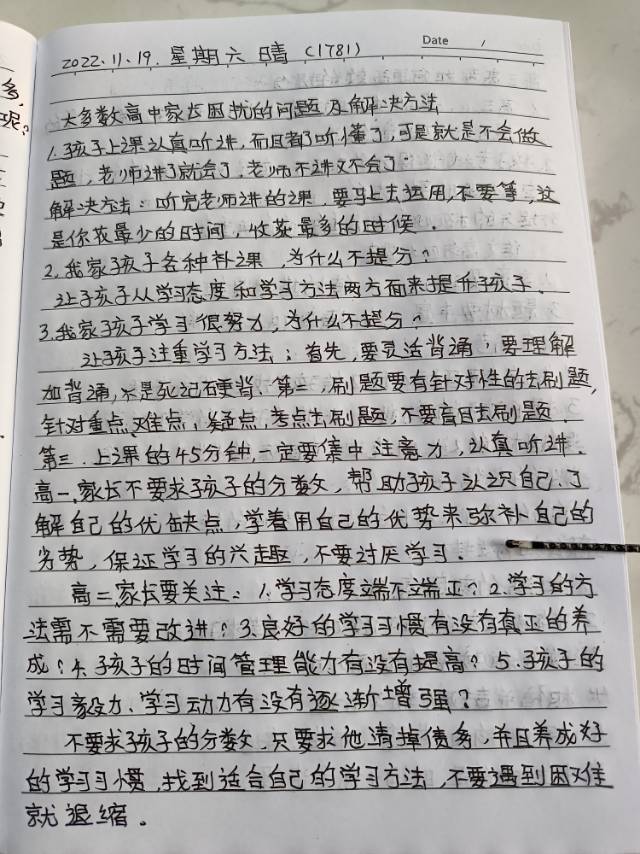 多,
呢?
Date /
2022.11.19. 星期六 晴 (1781)
大多数高中家长困扰的问题及解决方法
1.孩子上课认真听讲,而且都听懂了,可是就是不会做
题,老师讲了就会了,老师不讲又不会了?
解决方法:听完老师讲的课,要马上去运用,不要等,这
是你花最少的时间,收获最多的时候.
2.我家孩子各种补课,为什么不提分?
让孩子从学习态度和学习方法两方面来提升孩子.
3.我家孩子学习很努力,为什么不提分?
让孩子注重学习方法;首先,要灵活背诵;要理解
加背诵,不是死记硬背、第二,刷题要有针对性的去刷题,
针对重点、难点,疑点,考点去刷题,不要盲目去刷题.
第三.上课的45分钟,一定要集中注意力,认真听讲.
高一,家长不要求孩子的分数,帮助孩子认识自己.了
解自己的优缺点,学着用自己的优势来弥补自己的
劣势,保证学习的兴趣,不要讨厌学习.
高二,家长要关注:1.学习态度端不端正?2.学习的方
法需不需要改进?3.良好的学习习惯有没有真正的养
成?4.孩子的时间管理能力有没有提高?5.孩子的
学习毅力、学习动力有没有逐渐增强?
不要求孩子的分数,只要求他清掉债务,并且养成好
的学习习惯,找到适合自己的学习方法,不要遇到困难
就退缩。